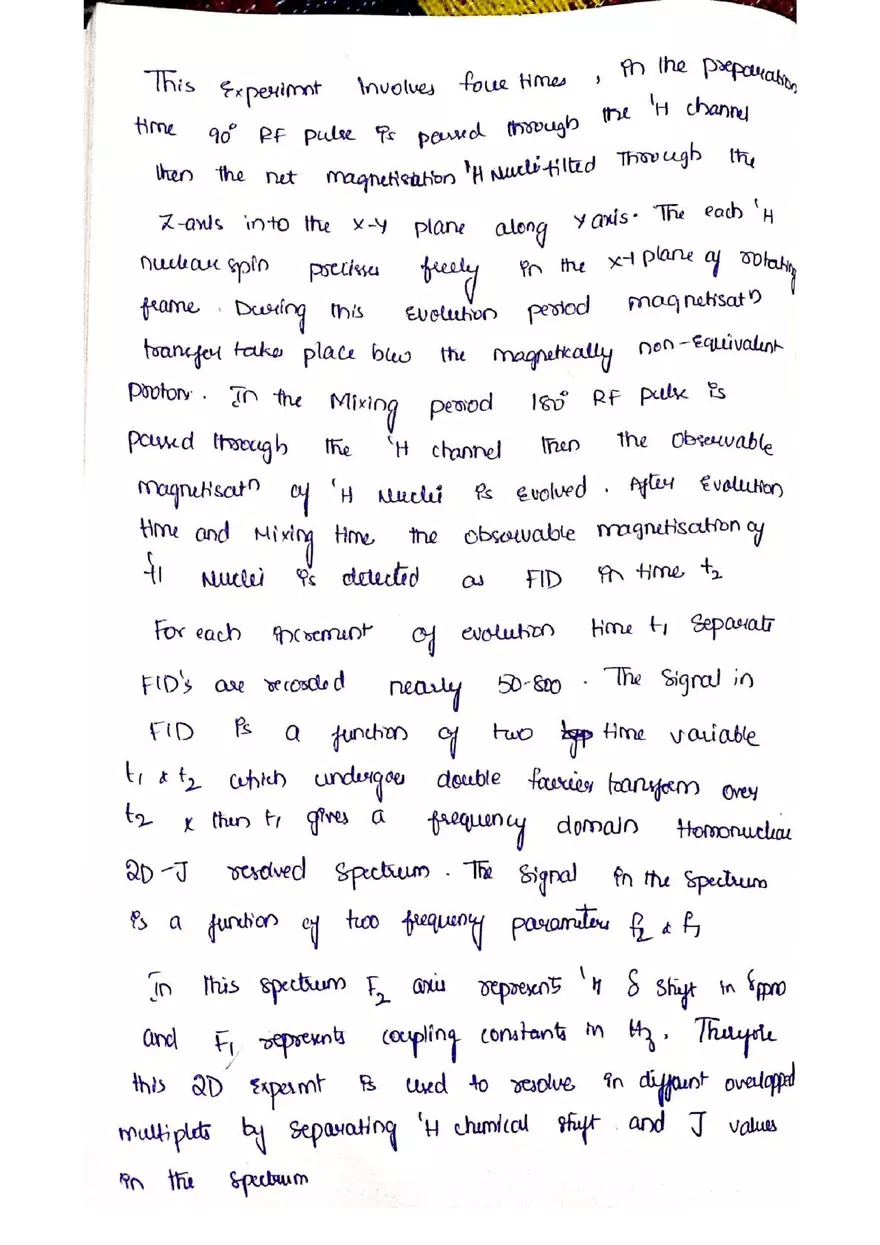 This Experimnt Involves four times, in the preparation
time 90° RF pulse is passed through the ¹H channel
then the net magnetisation ¹H Nuclei tilted Through the
Z-axis into the x-y plane along y axis. The each ¹H
nuclear spin precisses freely in the x-y plane of rotating
frame. During this evolution period magnetisatⁿ
transfer takes place b/w the magnetically non-equivalent
protons. In the Mixing period 180° RF pulse is
passed through the ¹H channel then the Observable
magnetisatⁿ of ¹H Nuclei is evolved. After Evolution
time and Mixing time the observable magnetisation of
Nuclei is detected as FID in time t₂
For each increment of evolution time t₁ Separate
FID's are recorded nearly 50-800. The Signal in
FID is a function of two time variable
t₁ & t₂ which undergoes double fourier transform over
t₂ & then t₁ gives a frequency domain Homonuclear
2D-J resolved Spectrum. The Signal in the Spectrum
is a function of two frequency parameters f₂ & f₁
In this spectrum F₂ axis represents ¹H δ shift in δppm
and F₁ represents coupling constants in Hz. Therefore
this 2D Experimt is used to resolve in diffaunt overlapped
multiplets by separating ¹H chemical shift and J values
in the spectrum